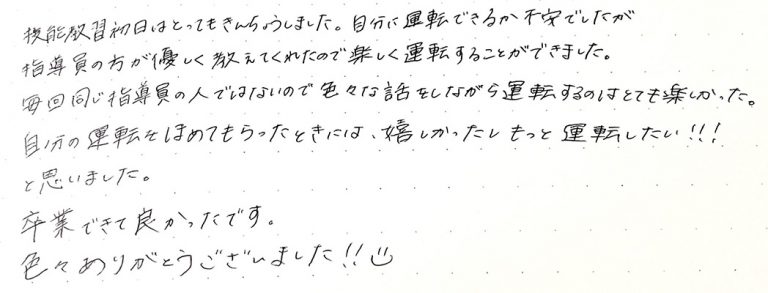 技能教習初日はとってもきんちょうしました。自分に運転できるか不安でしたが
指導員の方が優しく教えてくれたので楽しく運転することができました。
毎回同じ指導員の人ではないので色々な話をしながら運転するのはとても楽しかった。
自分の運転をほめてもらったときには、嬉しかったしもっと運転したい!!!
と思いました。
卒業できて良かったです。
色々ありがとうございました!!